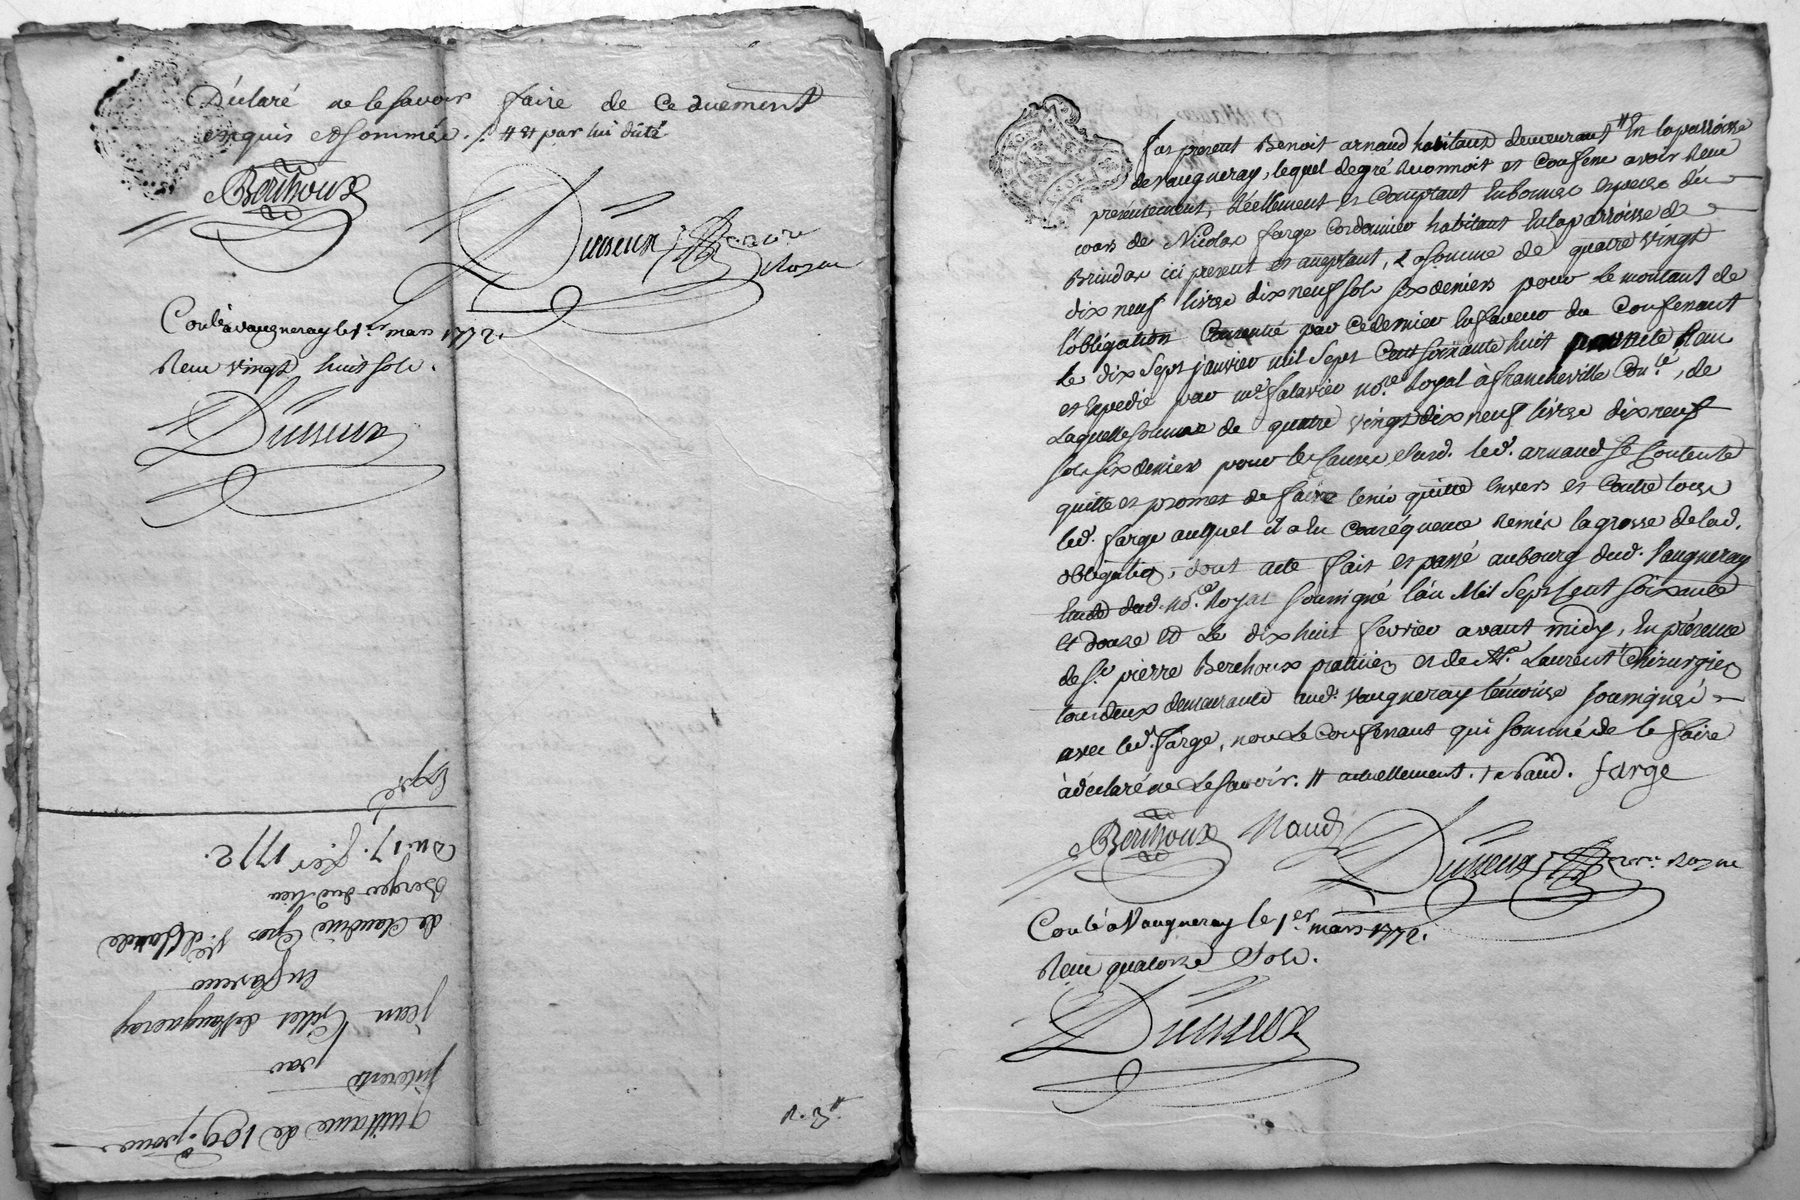 Déclaré ne le savoir faire de ce duement
enquis et sommé. /. # et par lui dûté
Berthoux
Dusseux
Royal
Conlé a vaugneray le 1er mars 1772.
Reçu vingt huit sols.
Dusseux
Expé
Du 17. fer 1772.
Berger dud. lieu
de Claudine Gros Ve. de Claude
en faveur
jean Gillet de Vaugneray
par
interests
quittance de 109.# pour
fut present Benoit arnaud habitant demeurant # En la parroisse
de vaugneray, lequel de gré reconnoit et Confesse avoir Reçu
présentement, Réellement et Comptant En bonnes especes du
cours de Nicolas farge Cordonnier habitant En la parroisse de
Brindas ici present et acceptant, la somme de quatre vingt
dix neuf livres dix neuf sols six deniers pour le montant de
l'obligation Consentie par ce dernier En faveur du Confessant
le dix sept janvier mil Sept Cent soixante huit
et Expedié par me. falavier nore. Royal à francheville Conlé, de
Laquelle somme de quatre vingt dix neuf livres dix neuf
sols six deniers pour les causes susd. led. arnaud se Contente
quitte et promet de faire tenir quitte Envers et Contre tous
led. farge auquel il a En Conséquence Remis la grosse de lad.
obligation, dont acte fait et passé au bourg dud. Vaugneray
Etude dud. nore. Royal soussigné l'an Mil Sept Cent soixante
et douze Et Le dix huit fevrier avant midy, En présence
de Sr. pierre Berthoux praticien et de Me. Laurent Chirurgien
tous deux demeurants aud. Vaugneray témoins soussignés
avec led. farge, non le Confessant qui sommé de le faire
à déclaré ne Le Savoir. # actuellement. /. Naud. farge
Berthoux Naud Dusseux Royal
Conlé a Vaugneray le 1er. mars 1772.
Reçu quatorze Sols.
Dusseux